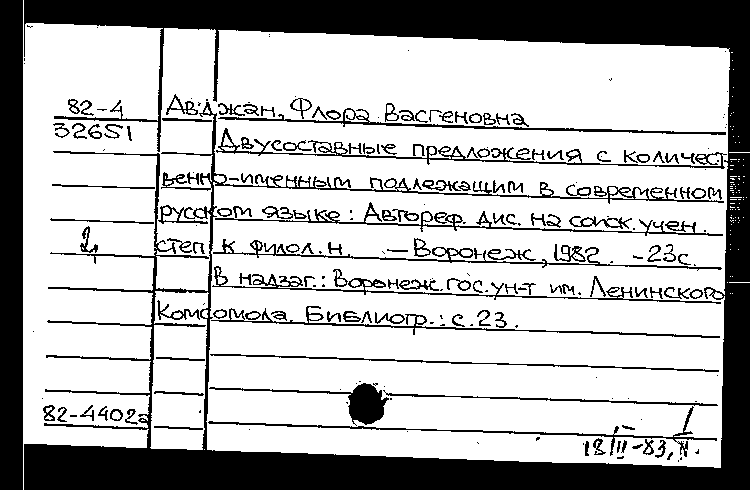 82-4 Авджан, Флора Васгеновна
32651
Двусоставные предложения с количест
венно-именным подлежащим в современном
русском языке: Автореф. дис. на соиск. учен.
2 степ. к. филол. н. — Воронеж, 1982. - 23с.
В надзаг.: Воронеж. гос. ун-т им. Ленинского
Комсомола. Библиогр.: с. 23.
82-4402а
18/II-83,